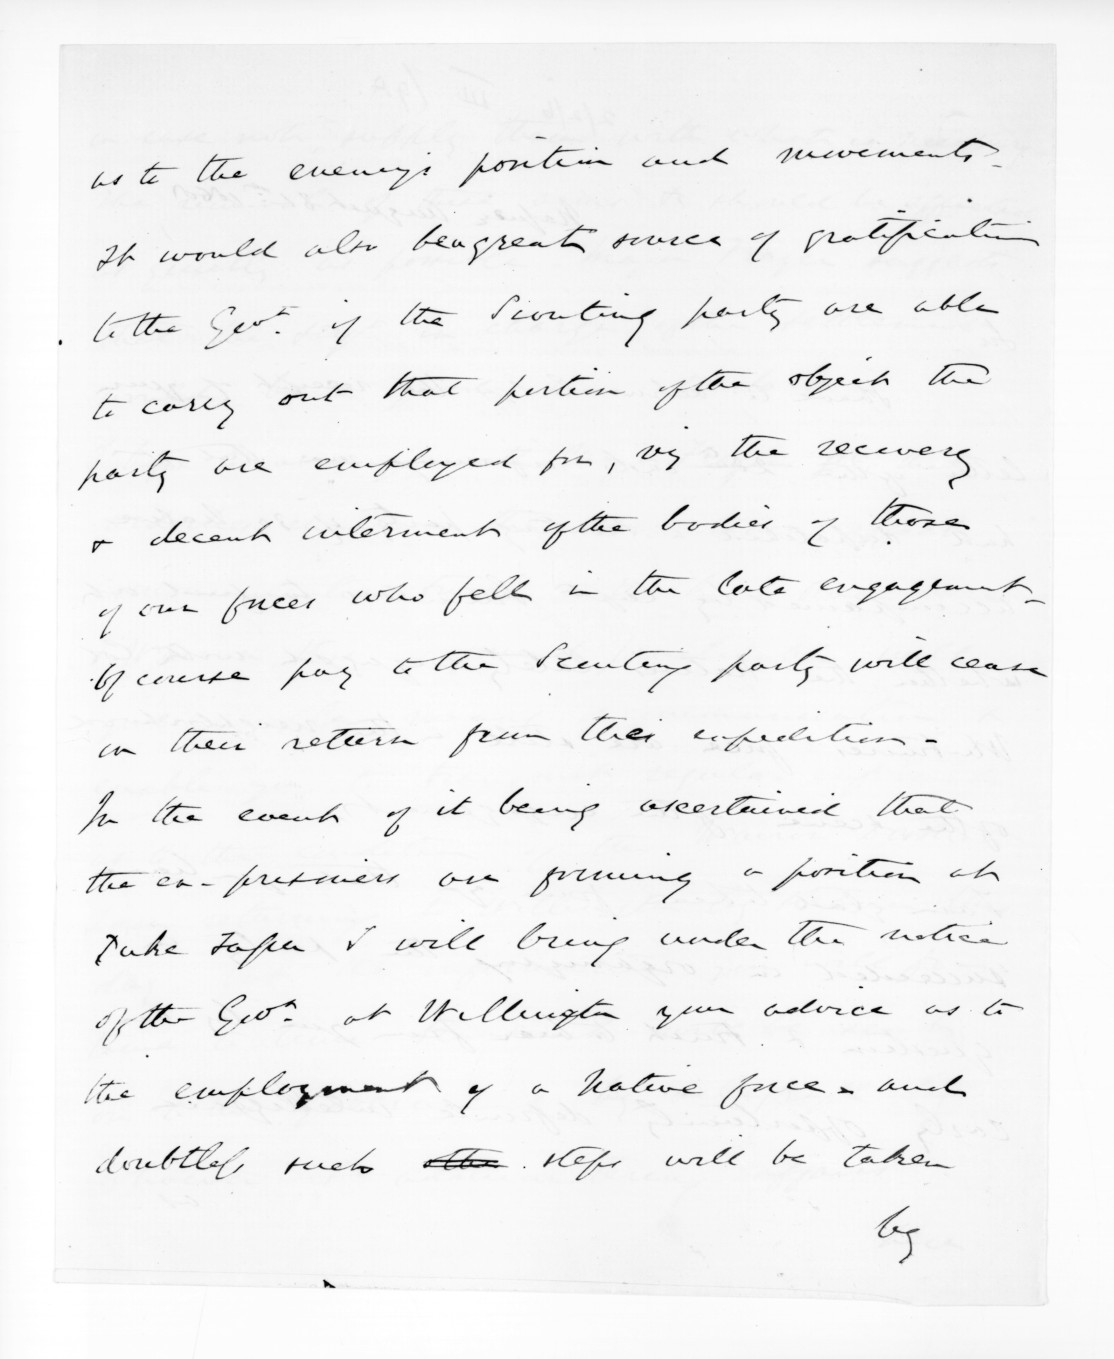 as to the enemy's position and movements -
It would also be a great source of gratification
to the Govt. if the Scouting party are able
to carry out that portion of the object the
party are employed for, viz the recovery
& decent interment of the bodies of those
of our forces who fell in the late engagement -
Of course pay to the Scouting party will cease
on their return from this expedition -
In the event of it being ascertained that
the ex-prisoners are forming a position at
Puke I will bring under the notice
of the Govt. at Wellington your advice as to
the employment of a Native force - and
doubtless such steps will be taken
by